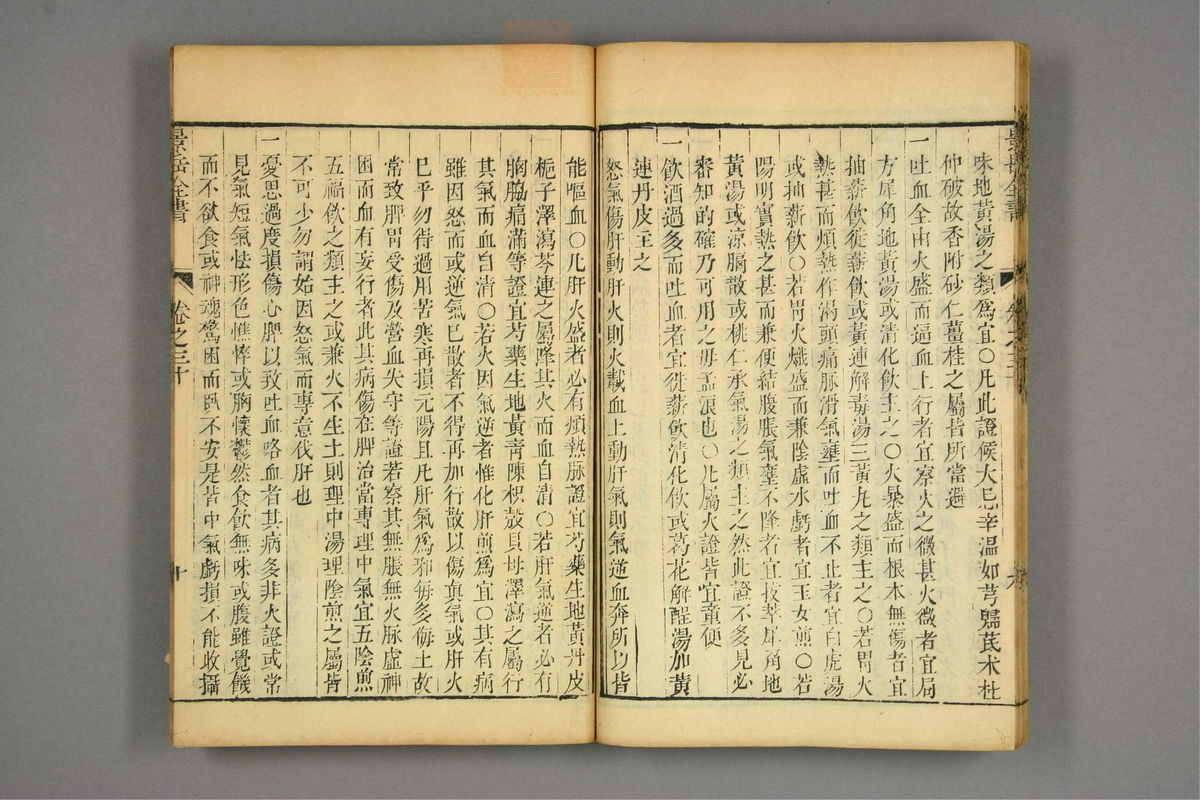 味地黃湯之類爲宜○凡此證候大忌辛溫如芎歸芪术杜
仲破故香附砂仁薑桂之屬皆所當避
一吐血全由火盛而逼血上行者宜察火之微甚火微者宜局
方犀角地黃湯或清化飲主之○火暴盛而根本無傷者宜
抽薪飲徙薪飲或黃連解毒湯三黃丸之類主之○若胃火
熱甚而煩熱作渴頭痛脉滑氣壅而吐血不止者宜白虎湯
或抽薪飲○若胃火熾盛而兼陰虛水虧者宜玉女煎○若
陽明實熱之甚而兼便結腹脹氣壅不降者宜拔萃犀角地
黃湯或凉膈散或桃仁承氣湯之類主之然此證不多見必
審知的確乃可用之毋孟浪也○凡屬火證皆宜童便
一飲酒過多而吐血者宜徙薪飲清化飲或葛花解酲湯加黃
連丹皮主之
怒氣傷肝動肝火則火載血上動肝氣則氣逆血奔所以皆
能嘔血○凡肝火盛者必有煩熱脉證宜芍藥生地黃丹皮
梔子澤瀉芩連之屬降其火而血自清○若肝氣逆者必有
胸脇痛滿等證宜芍藥生地黃靑陳枳殼貝母澤瀉之屬行
其氣而血自清○若火因氣逆者惟化肝煎爲宜○其有病
雖因怒而或逆氣已散者不得再加行散以傷眞氣或肝火
已平勿得過用苦寒再損元陽且凡肝氣爲邪每多侮土故
常致脾胃受傷及營血失守等證若察其無脹無火脉虛神
困而血有妄行者此其病傷在脾治當專理中氣宜五陰煎
五福飲之類主之或兼火不生土則理中湯理陰煎之屬皆
不可少勿謂始因怒氣而專意伐肝也
一憂思過度損傷心脾以致吐血咯血者其病多非火證或常
見氣短氣怯形色憔悴或胸懷鬱然食飲無味或腹雖覺饑
而不欲食或神魂驚困而臥不安是皆中氣虧損不能收攝
景岳全書
卷之三十
十